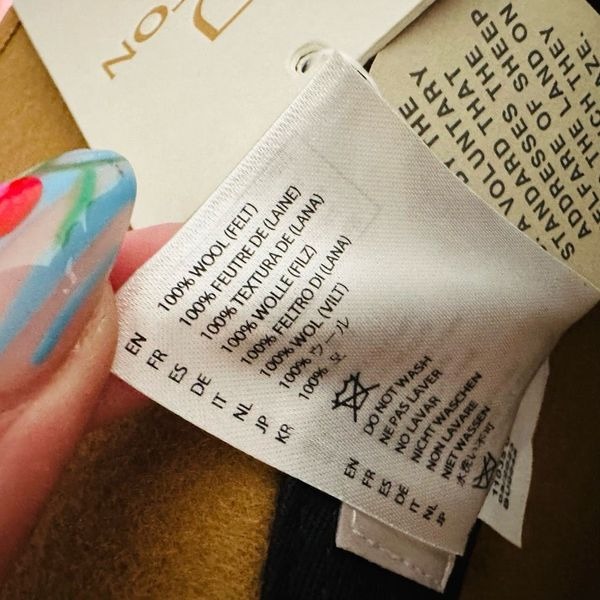 TON
BY THE
A VOLUNTARY
STANDARD THAT
ADDRESSES THE
WELFARE OF SHEEP
THE LAND ON
THEY
EN 100% WOOL (FELT)
FR 100% FEUTRE DE (LAINE)
ES 100% TEXTURA DE (LANA)
DE 100% WOLLE (FILZ)
IT 100% FELTRO DI (LANA)
NL 100% WOL (VILT)
JP 100% ウール
KR 100%
EN DO NOT WASH
FR NE PAS LAVER
ES NO LAVAR
DE NICHT WASCHEN
IT NON LAVARE
NL NET WASSEN
JP